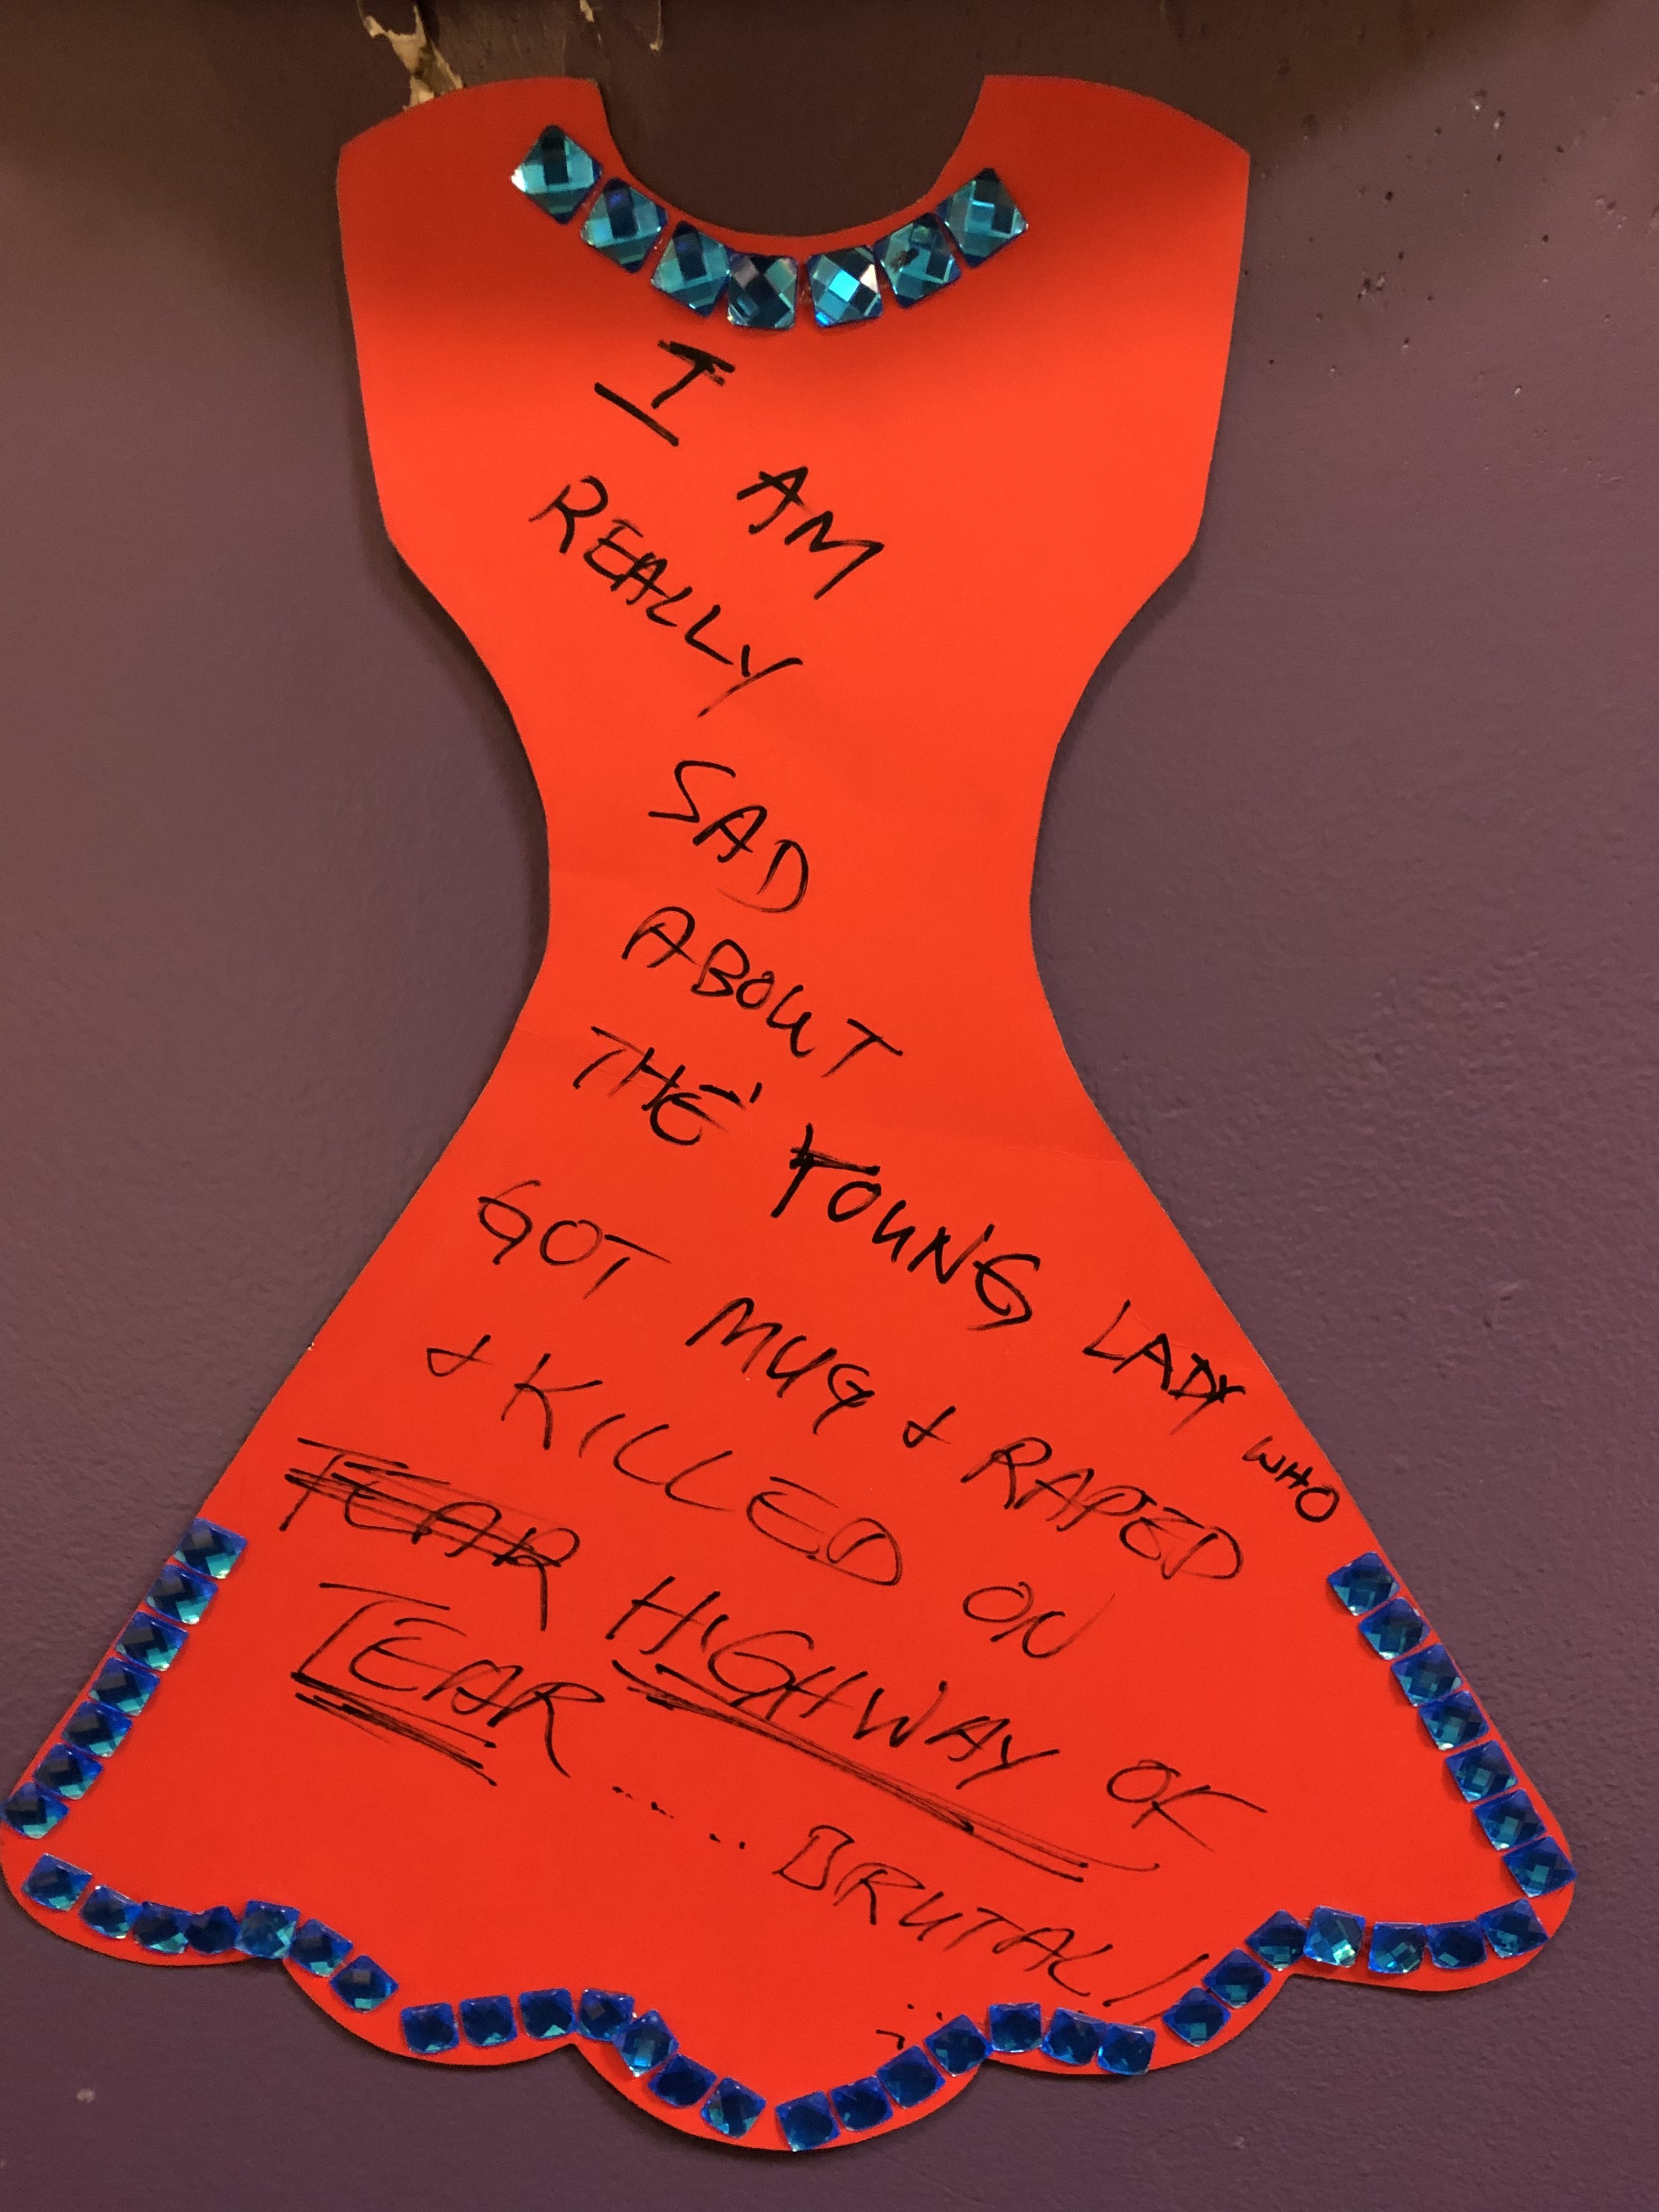 I AM
REALLY
SAD
ABOUT
THE YOUNG LADY WHO
GOT MUG & RAPED
& KILLED ON
TEAR HIGHWAY OF
TEAR ..... BRUTAL!